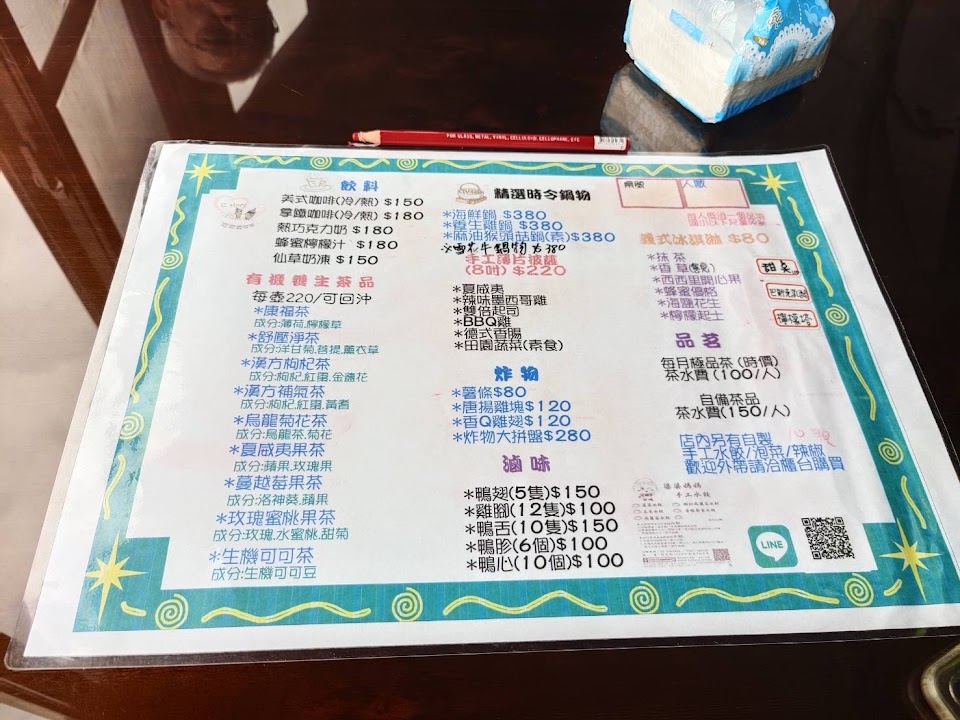 FOR GLASS, METAL, VINYL, CELLULOID, CELLOPHANE, ETC
飲料
美式咖啡(冷/熱) $150
拿鐵咖啡(冷/熱) $180
熱巧克力奶 $180
蜂蜜檸檬汁 $180
仙草奶凍 $150
有機養生茶品
每壺220/可回沖
*康福茶
成分:薄荷,檸檬草
*舒壓淨茶
成分:洋甘菊,菩提,薰衣草
*漢方枸杞茶
成分:枸杞,紅棗,金盞花
*漢方補氣茶
成分:枸杞,紅棗,黃耆
*烏龍菊花茶
成分:烏龍茶,菊花
*夏威夷果茶
成分:蘋果,玫瑰果
*蔓越莓果茶
成分:洛神葵,蘋果
*玫瑰蜜桃果茶
成分:玫瑰,水蜜桃,甜菊
*生機可可茶
成分:生機可可豆
精選時令鍋物
*海鮮鍋 $380
*養生雞鍋 $380
*麻油猴頭菇鍋(素)$380
雪花牛鍋物 $380
手工薄片披薩
(8吋) $220
*夏威夷
*辣味墨西哥雞
*雙倍起司
*BBQ雞
*德式香腸
*田園蔬菜(素食)
炸物
*薯條$80
*唐揚雞塊$120
*香Q雞翅$120
*炸物大拼盤$280
滷味
*鴨翅(5隻)$150
*雞腳(12隻)$100
*鴨舌(10隻)$150
*鴨胗(6個)$100
*鴨心(10個)$100
桌號
人數
義式冰淇淋 $80
*抹茶
*香草
*西西里開心果
*蜂蜜優格
*海鹽花生
*檸檬起士
品茗
每月極品茶 (時價)
茶水費 (100/人)
自備茶品
茶水費(150/人)
店內另有自製
手工水餃/泡菜/辣椒
歡迎外帶請洽櫃台購買
手工水餃
LINE